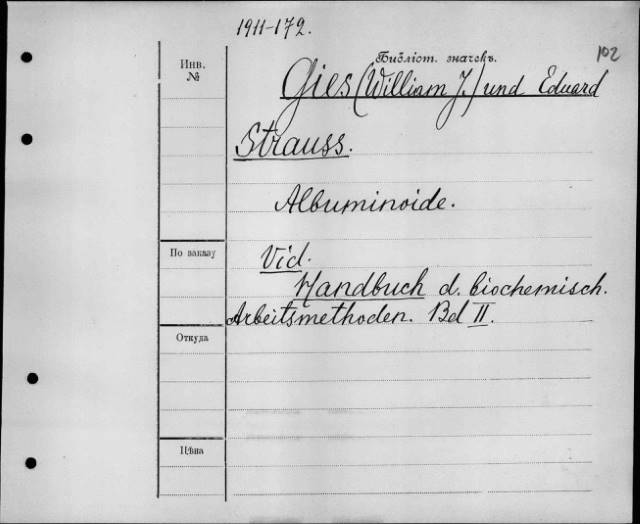 1911-172.
102
Инв.
№
Библіот. значекъ.
Gies (William J.) und Eduard
Strauss.
Albuminoide.
По заказу
Vid.
Handbuch d. biochemisch.
Arbeitsmethoden. Bd II.
Откуда
Цѣна